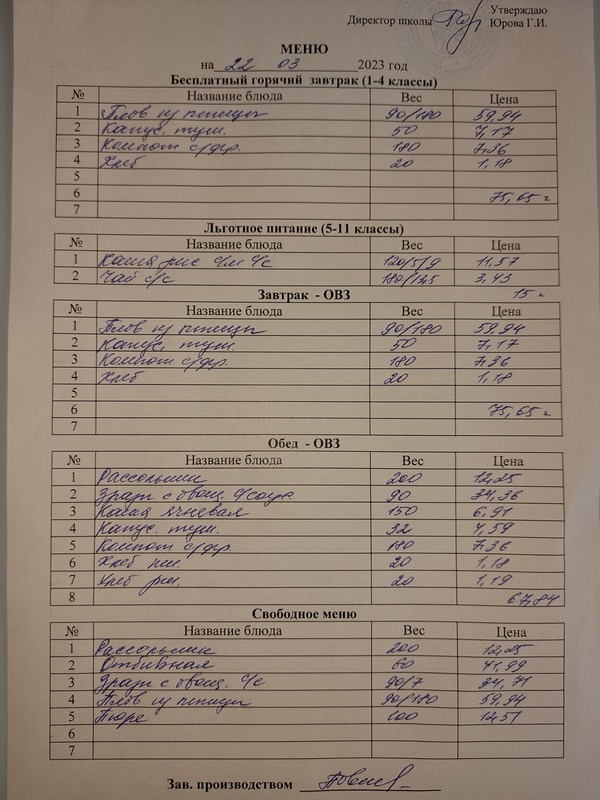 Утверждаю
Директор школы Юрова Г.И.
МЕНЮ
на 22 03 2023 год
Бесплатный горячий завтрак (1-4 классы)
№ Название блюда Вес Цена
1 Плов из птицы 90/180 59,94
2 Капус. туш. 50 7,17
3 Компот с/фр. 180 7,36
4 Хлеб 20 1,18
5
6 75,65
7
Льготное питание (5-11 классы)
№ Название блюда Вес Цена
1 Каша рис 120/5/9 11,57
2 Чай с/с 180/12,5 3,43
Завтрак - ОВЗ 15
№ Название блюда Вес Цена
1 Плов из птицы 90/180 59,94
2 Капус. туш. 50 7,17
3 Компот с/фр. 180 7,36
4 Хлеб 20 1,18
5
6 75,65
7
Обед - ОВЗ
№ Название блюда Вес Цена
1 Рассольник 200 12,25
2 Зразы с овощ. 90 34,36
3 Каша ячневая 150 6,91
4 Капус. туш. 32 4,59
5 Компот с/фр. 180 7,36
6 Хлеб пш. 20 1,18
7 Хлеб рж. 20 1,19
8 67,84
Свободное меню
№ Название блюда Вес Цена
1 Рассольник 200 12,25
2 Отбивная 60 41,99
3 Зразы с овощ. с/с 90/7 34,71
4 Плов из птицы 90/180 59,94
5 Пюре 100 12,51
6
7
Зав. производством